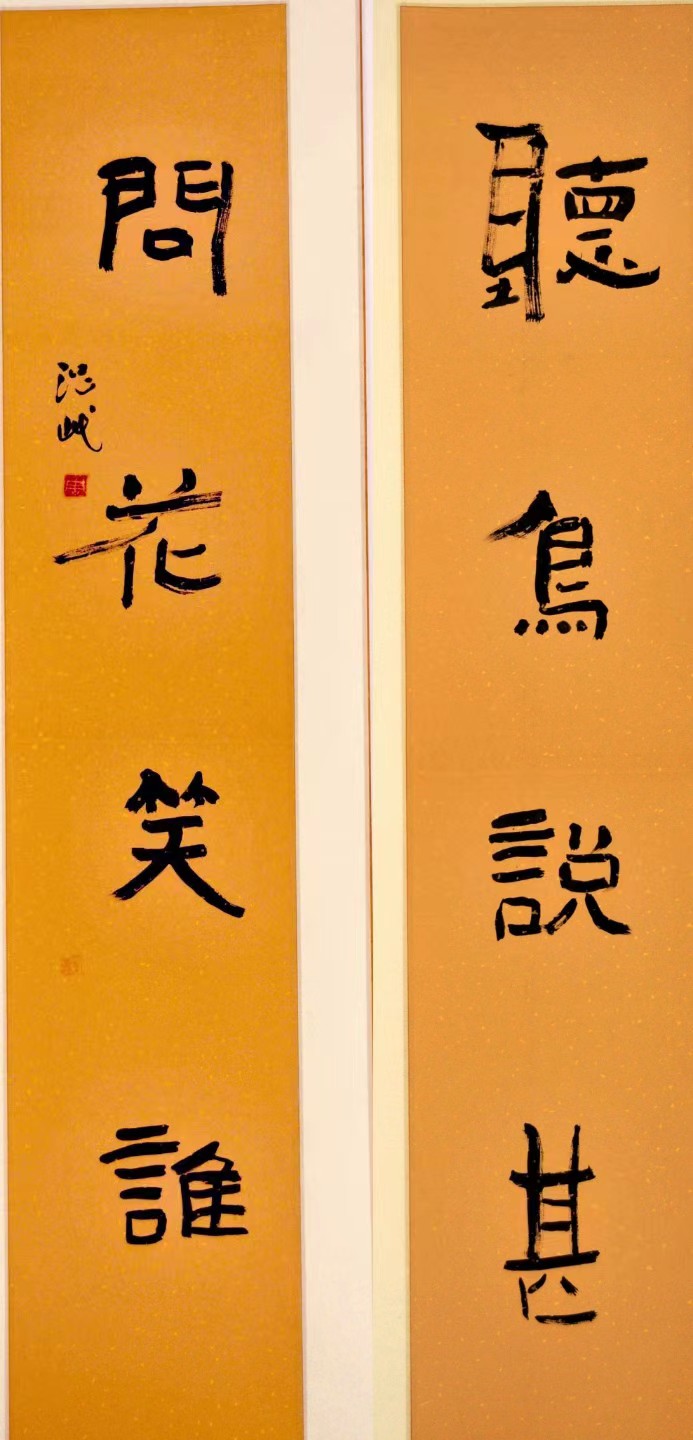 聽鳥說甚
問花笑誰